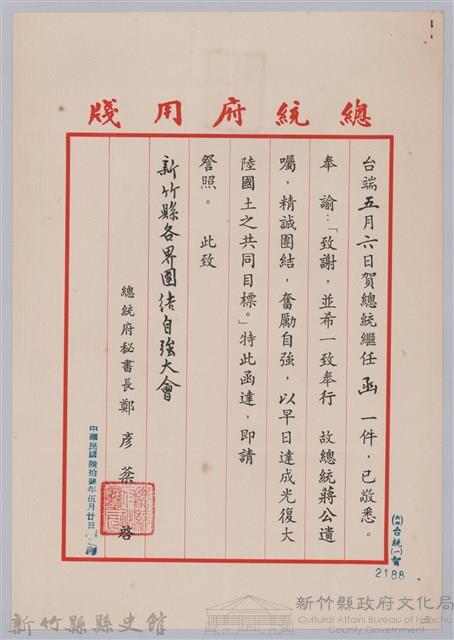 總統府用牋
台端五月六日賀總統繼任 函 一件，已敬悉。
奉 諭：「致謝，並希一致奉行 故總統蔣公遺
囑，精誠團結，奮勵自強，以早日達成光復大
陸國土之共同目標。」特此函達，即請
詧照。 此致
新竹縣各界團結自強大會
總統府秘書長 鄭彥棻 啓
中華民國陸拾肆年伍月廿日
台統(一)賀
2188
新竹縣縣史館
新竹縣政府文化局
Cultural Affairs Bureau of Hsinchu
County Government